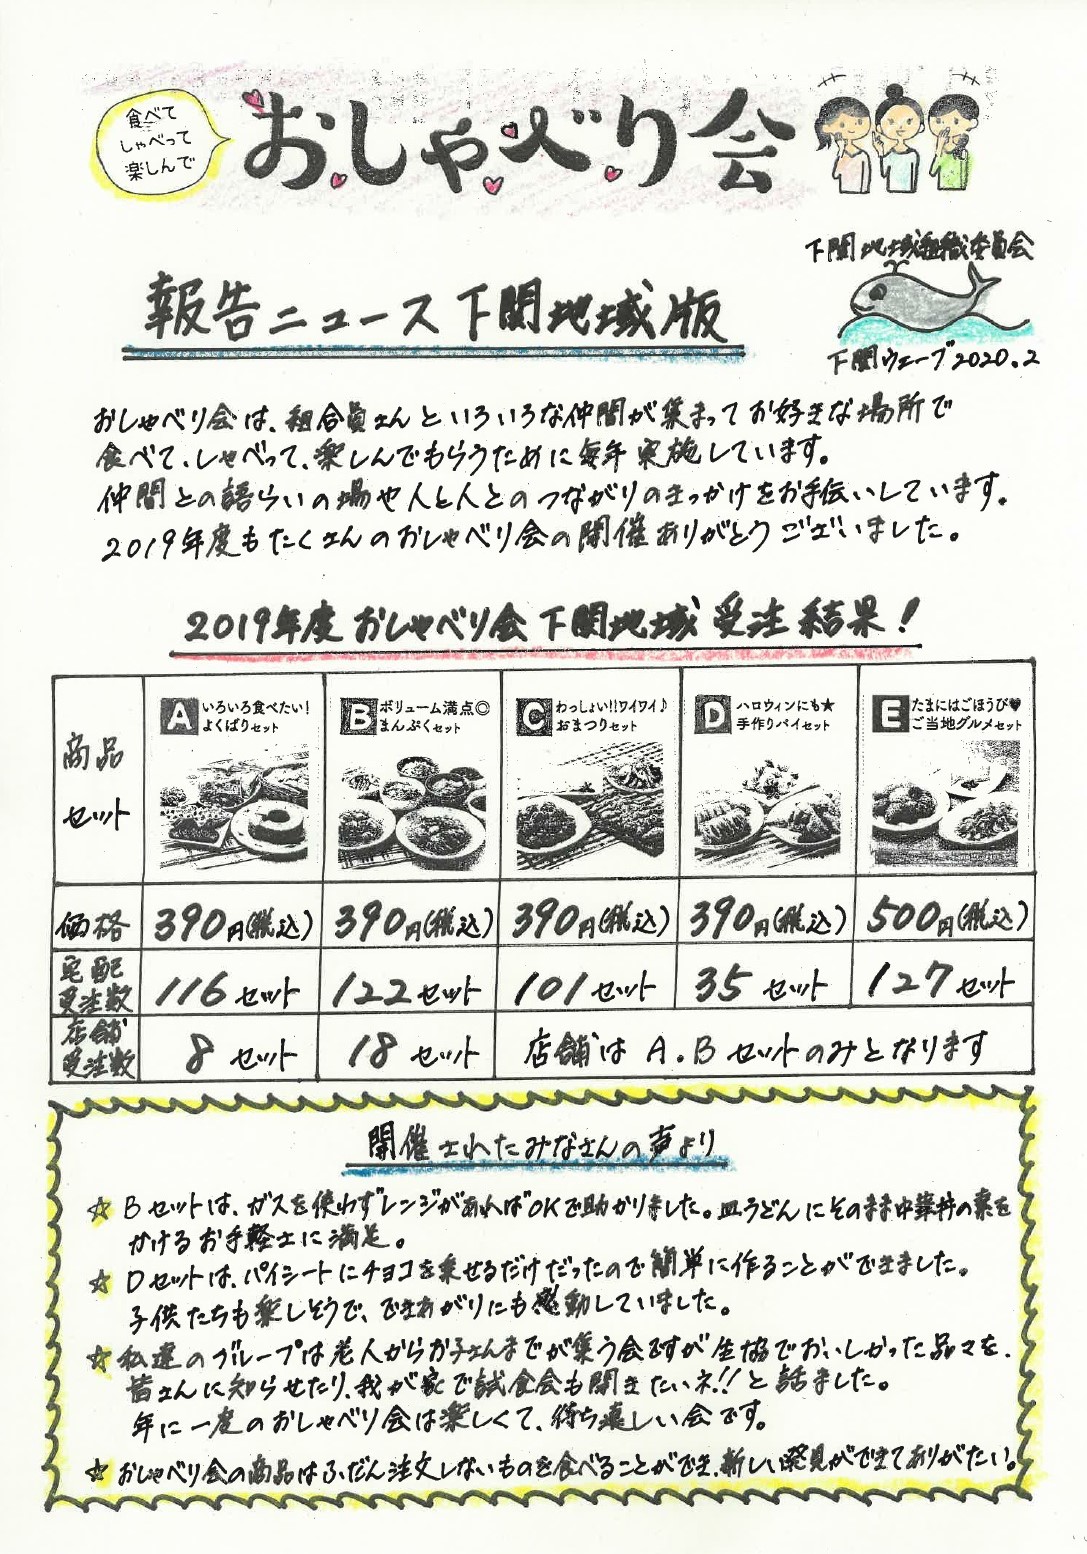 食べて
しゃべって
楽しんで
おしゃべり会
下関地域組織委員会
報告ニュース下関地域版
下関ウェーブ2020.2
おしゃべり会は、組合員さんといろいろな仲間が集まってお好きな場所で
食べて、しゃべって、楽しんでもらうために毎年実施しています。
仲間との語らいの場や人と人とのつながりのきっかけをお手伝いしています。
2019年度もたくさんのおしゃべり会の開催ありがとうございました。
2019年度おしゃべり会下関地域受注結果！
商品
セット
A いろいろ食べたい！
よくばりセット
B ボリューム満点◎
まんぷくセット
C わっしょい!!ワイワイ♪
おまつりセット
D ハロウィンにも★
手作りパイセット
E たまにはごほうび♥
ご当地グルメセット
価格 390円(税込) 390円(税込) 390円(税込) 390円(税込) 500円(税込)
宅配
受注数 116セット 122セット 101セット 35セット 127セット
店舗
受注数 8セット 18セット 店舗はA.Bセットのみとなります
開催されたみなさんの声より
☆ Bセットは、ガスを使わずレンジがあればOKで助かりました。皿うどんにそのまま中華丼の素を
かけるお手軽さに満足。
☆ Dセットは、パイシートにチョコを乗せるだけだったので簡単に作ることができました。
子供たちも楽しそうで、できあがりにも感動していました。
☆ 私達のグループは老人からお子さんまでが集う会ですが生協でおいしかった品々を、
皆さんに知らせたり、我が家で試食会も開きたいネ!!と話ました。
年に一度のおしゃべり会は楽しくて、待ち遠しい会です。
☆ おしゃべり会の商品はふだん注文しないものを食べることができ、新しい発見ができてありがたい。